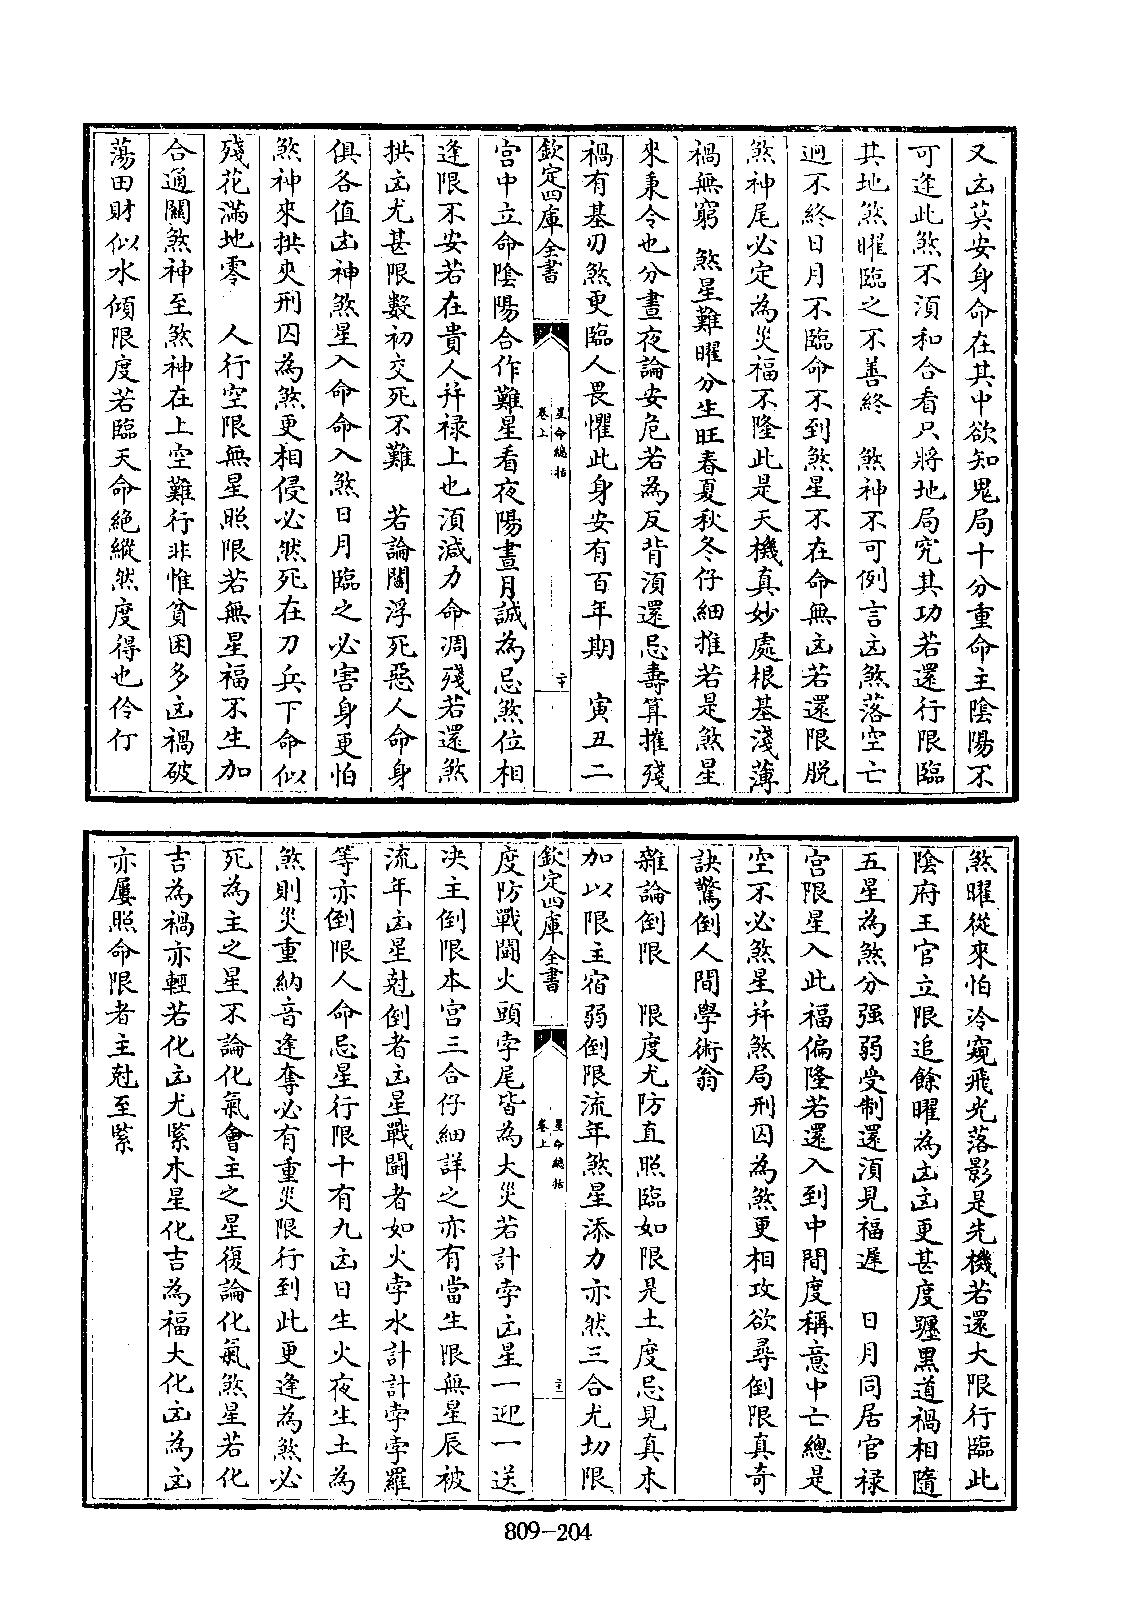 又㐫莫安身命在其中欲知鬼局十分重命主陰陽不
可逢此煞不湏和合看只將地局究其功若還行限臨
其地煞曜臨之不善終　煞神不可例言㐫煞落空亡
迥不終日月不臨命不到煞星不在命無㐫若還限脱
煞神尾必定為災福不隆此是天機真妙處根基淺薄
禍無窮　煞星難曜分生旺春夏秋冬仔細推若是煞星
來秉令也分晝夜論安危若為反背湏還忌壽算推殘
禍有基刃煞更臨人畏懼此身安有百年期　寅丑二
欽定四庫全書
星命總括
卷上
二十
宫中立命陰陽合作難星看夜陽晝月誠為忌煞位相
逢限不安若在貴人并禄上也湏減力命凋殘若還煞
拱㐫尤甚限數初交死不難　若論閻浮死惡人命身
俱各值㐫神煞星入命命入煞日月臨之必害身更怕
煞神來拱夾刑囚為煞更相侵必然死在刀兵下命似
殘花滿地零　人行空限無星照限若無星福不生加
合通關煞神至煞神在上空難行非惟貧困多㐫禍破
蕩田財似水傾限度若臨天命絶縱然度得也伶仃
煞曜從來怕冷窺飛光落影是先機若還大限行臨此
陰府王官立限追餘曜為㐫㐫更甚度躔黒道禍相隨
五星為煞分强弱受制還湏見福遲　日月同居官禄
宫限星入此福偏隆若還入到中間度稱意中亡總是
空不必煞星并煞局刑囚為煞更相攻欲尋倒限真奇
訣驚倒人間學術翁
雜論倒限　限度尤防直照臨如限是土度忌見真木
加以限主宿弱倒限流年煞星添力亦然三合尤切限
欽定四庫全書
星命總括
卷上
二十一
度防戰鬪火頭孛尾皆為大災若計孛㐫星一迎一送
决主倒限本宫三合仔細詳之亦有當生限無星辰被
流年㐫星尅倒者㐫星戰鬪者如火孛水計計孛孛羅
等亦倒限人命忌星行限十有九㐫日生火夜生土為
煞則災重納音逢奪必有重災限行到此更逢為煞必
死為主之星不論化氣會主之星復論化氣煞星若化
吉為禍亦輕若化㐫尤緊木星化吉為福大化㐫為㐫
亦屢照命限者主尅至緊
809-204